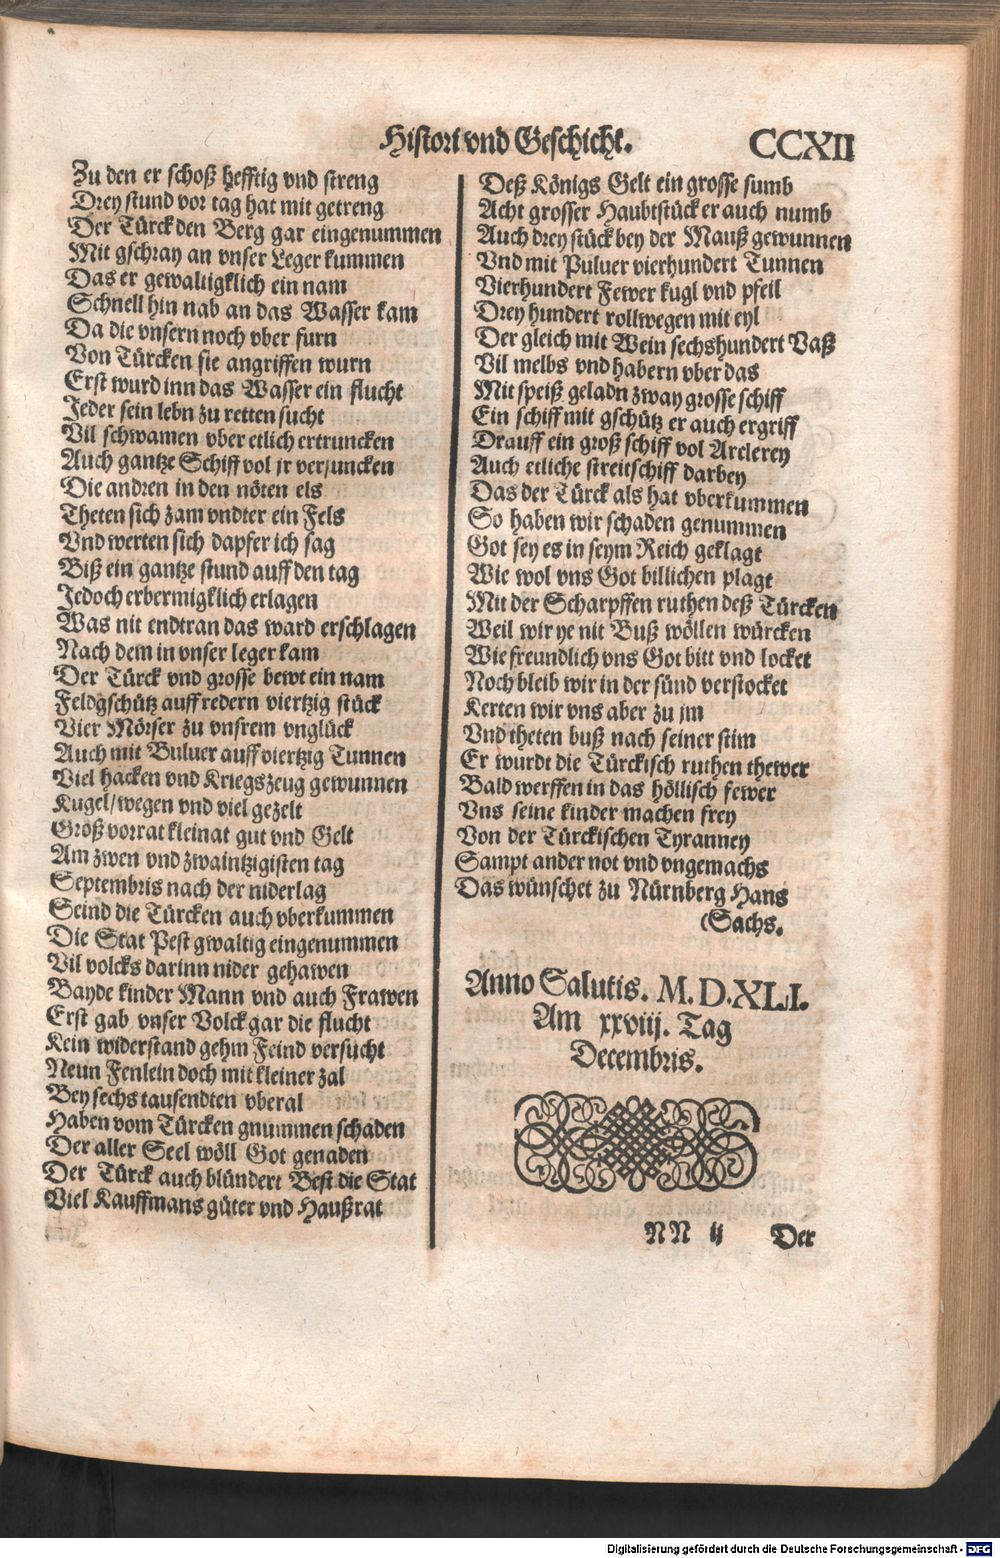 Histori vnd Geschicht. CCXII
Zu den er schoß hefftig vnd streng
Drey stund vor tag hat mit getreng
Der Türck den Berg gar eingenummen
Mit gschray an vnser Leger kummen
Das er gewaltigklich ein nam
Schnell hin nab an das Wasser kam
Da die vnsern noch vber furn
Von Türcken sie angriffen wurn
Erst wurd inn das Wasser ein flucht
Jeder sein lebn zu retten sucht
Vil schwamen vber etlich ertruncken
Auch gantze Schiff vol jr versuncken
Die andren in den nöten els
Theten sich zam vndter ein Fels
Vnd werten sich dapfer ich sag
Biß ein gantze stund auff den tag
Jedoch erbermigklich erlagen
Was nit endtran das ward erschlagen
Nach dem in vnser leger kam
Der Türck vnd grosse bewt ein nam
Feldgschütz auff redern viertzig stück
Vier Mörser zu vnsrem vnglück
Auch mit Buluer auff viertzig Tunnen
Viel hacken vnd Kriegszeug gewunnen
Kugel/wegen vnd viel gezelt
Groß vorrat kleinat gut vnd Gelt
Am zwen vnd zwaintzigisten tag
Septembris nach der niderlag
Seind die Türcken auch vberkummen
Die Stat Pest gwaltig eingenummen
Vil volcks darinn nider gehawen
Bayde kinder Mann vnd auch Frawen
Erst gab vnser Volck gar die flucht
Kein widerstand gehm Feind versucht
Neun Fenlein doch mit kleiner zal
Bey sechs tausendten vberal
Haben vom Türcken gnummen schaden
Der aller Seel wöll Got genaden
Der Türck auch blündert Best die Stat
Viel Kauffmans güter vnd Haußrat
Deß Königs Gelt ein grosse sumb
Acht grosser Haubtstück er auch numb
Auch drey stück bey der Mauß gewunnen
Vnd mit Puluer vierhundert Tunnen
Vierhundert Fewer kugl vnd pfeil
Drey hundert rollwegen mit eyl
Der gleich mit Wein sechshundert Vaß
Vil melbs vnd habern vber das
Mit speiß geladn zway grosse schiff
Ein schiff mit gschütz er auch ergriff
Drauff ein groß schiff vol Arclerey
Auch etliche streitschiff darbey
Das der Türck als hat vberkummen
So haben wir schaden genummen
Got sey es in seym Reich geklagt
Wie wol vns Got billichen plagt
Mit der Scharpffen ruthen deß Türcken
Weil wir ye nit Buß wöllen würcken
Wie freundlich vns Got bitt vnd locket
Noch bleib wir in der sünd verstocket
Kerten wir vns aber zu jm
Vnd theten buß nach seiner stim
Er wurdt die Türckisch ruthen thewer
Bald werffen in das höllisch fewer
Vns seine kinder machen frey
Von der Türckischen Tyranney
Sampt ander not vnd vngemachs
Das wünschet zu Nürnberg Hans
(Sachs.
Anno Salutis. M.D.XLI.
Am xxviij. Tag
Decembris.
NN ij Der
Digitalisierung gefördert durch die Deutsche Forschungsgemeinschaft - DFG